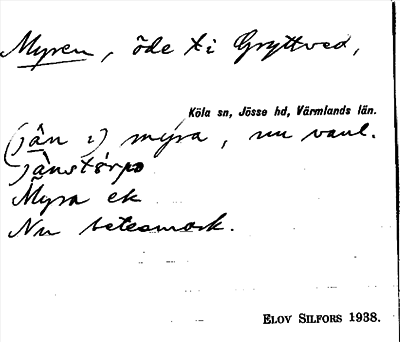 Myren, öde t. i Gryttved,
Köla sn, Jösse hd, Värmlands län.
(jân ı) myra, nu vanl.
jânstórpə
Myra ek
Nu betesmark.
ELOV SILFORS 1938.